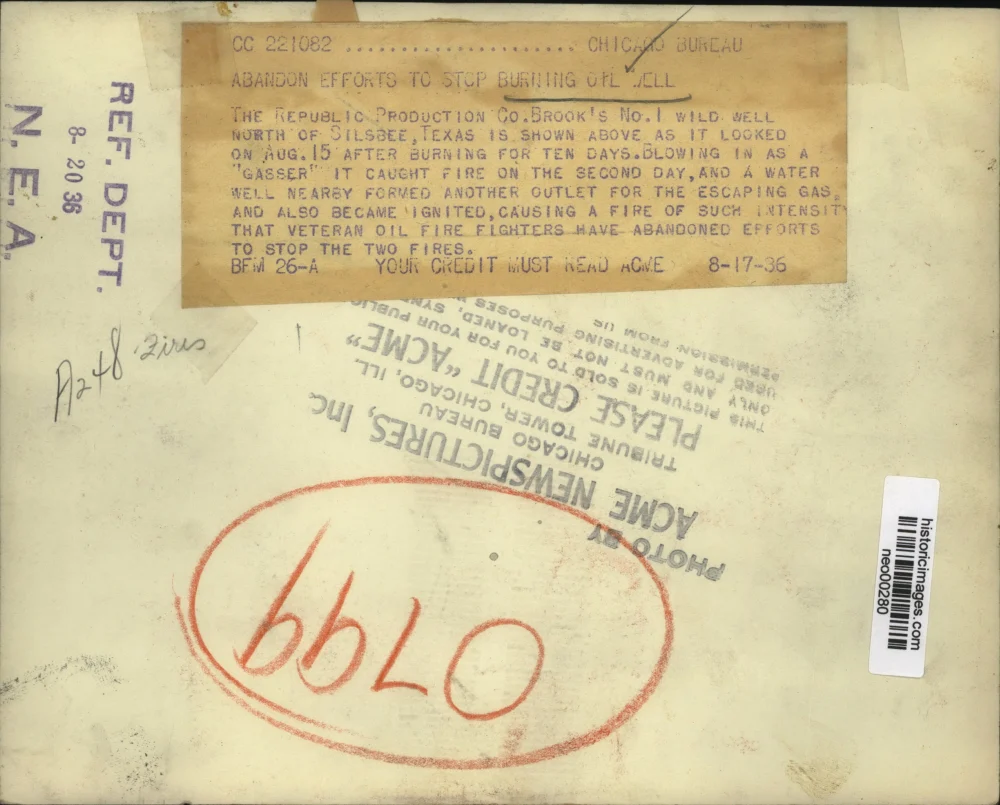 CC 221082 ........................ CHICAGO BUREAU
ABANDON EFFORTS TO STOP BURNING OIL WELL
THE REPUBLIC PRODUCTION CO.BROOK'S NO.1 WILD WELL
NORTH OF SILSBEE,TEXAS IS SHOWN ABOVE AS IT LOOKED
ON AUG.15 AFTER BURNING FOR TEN DAYS.BLOWING IN AS A
"GASSER" IT CAUGHT FIRE ON THE SECOND DAY,AND A WATER
WELL NEARBY FORMED ANOTHER OUTLET FOR THE ESCAPING GAS,
AND ALSO BECAME IGNITED,CAUSING A FIRE OF SUCH INTENSIT
THAT VETERAN OIL FIRE FIGHTERS HAVE ABANDONED EFFORTS
TO STOP THE TWO FIRES.
BFM 26-A YOUR CREDIT MUST READ ACME 8-17-36
REF. DEPT.
8- 20 36
N. E. A.
A248 Fires
PHOTO BY
ACME NEWSPICTURES, Inc.
CHICAGO BUREAU
TRIBUNE TOWER, CHICAGO, ILL.
PLEASE CREDIT "ACME"
THIS PICTURE IS SOLD TO YOU FOR YOUR PUBLIC
ONLY AND MUST NOT BE LOANED, SYND
USED FOR ADVERTISING PURPOSES
PERMISSION FROM US
0799
historicimages.com
neo00280